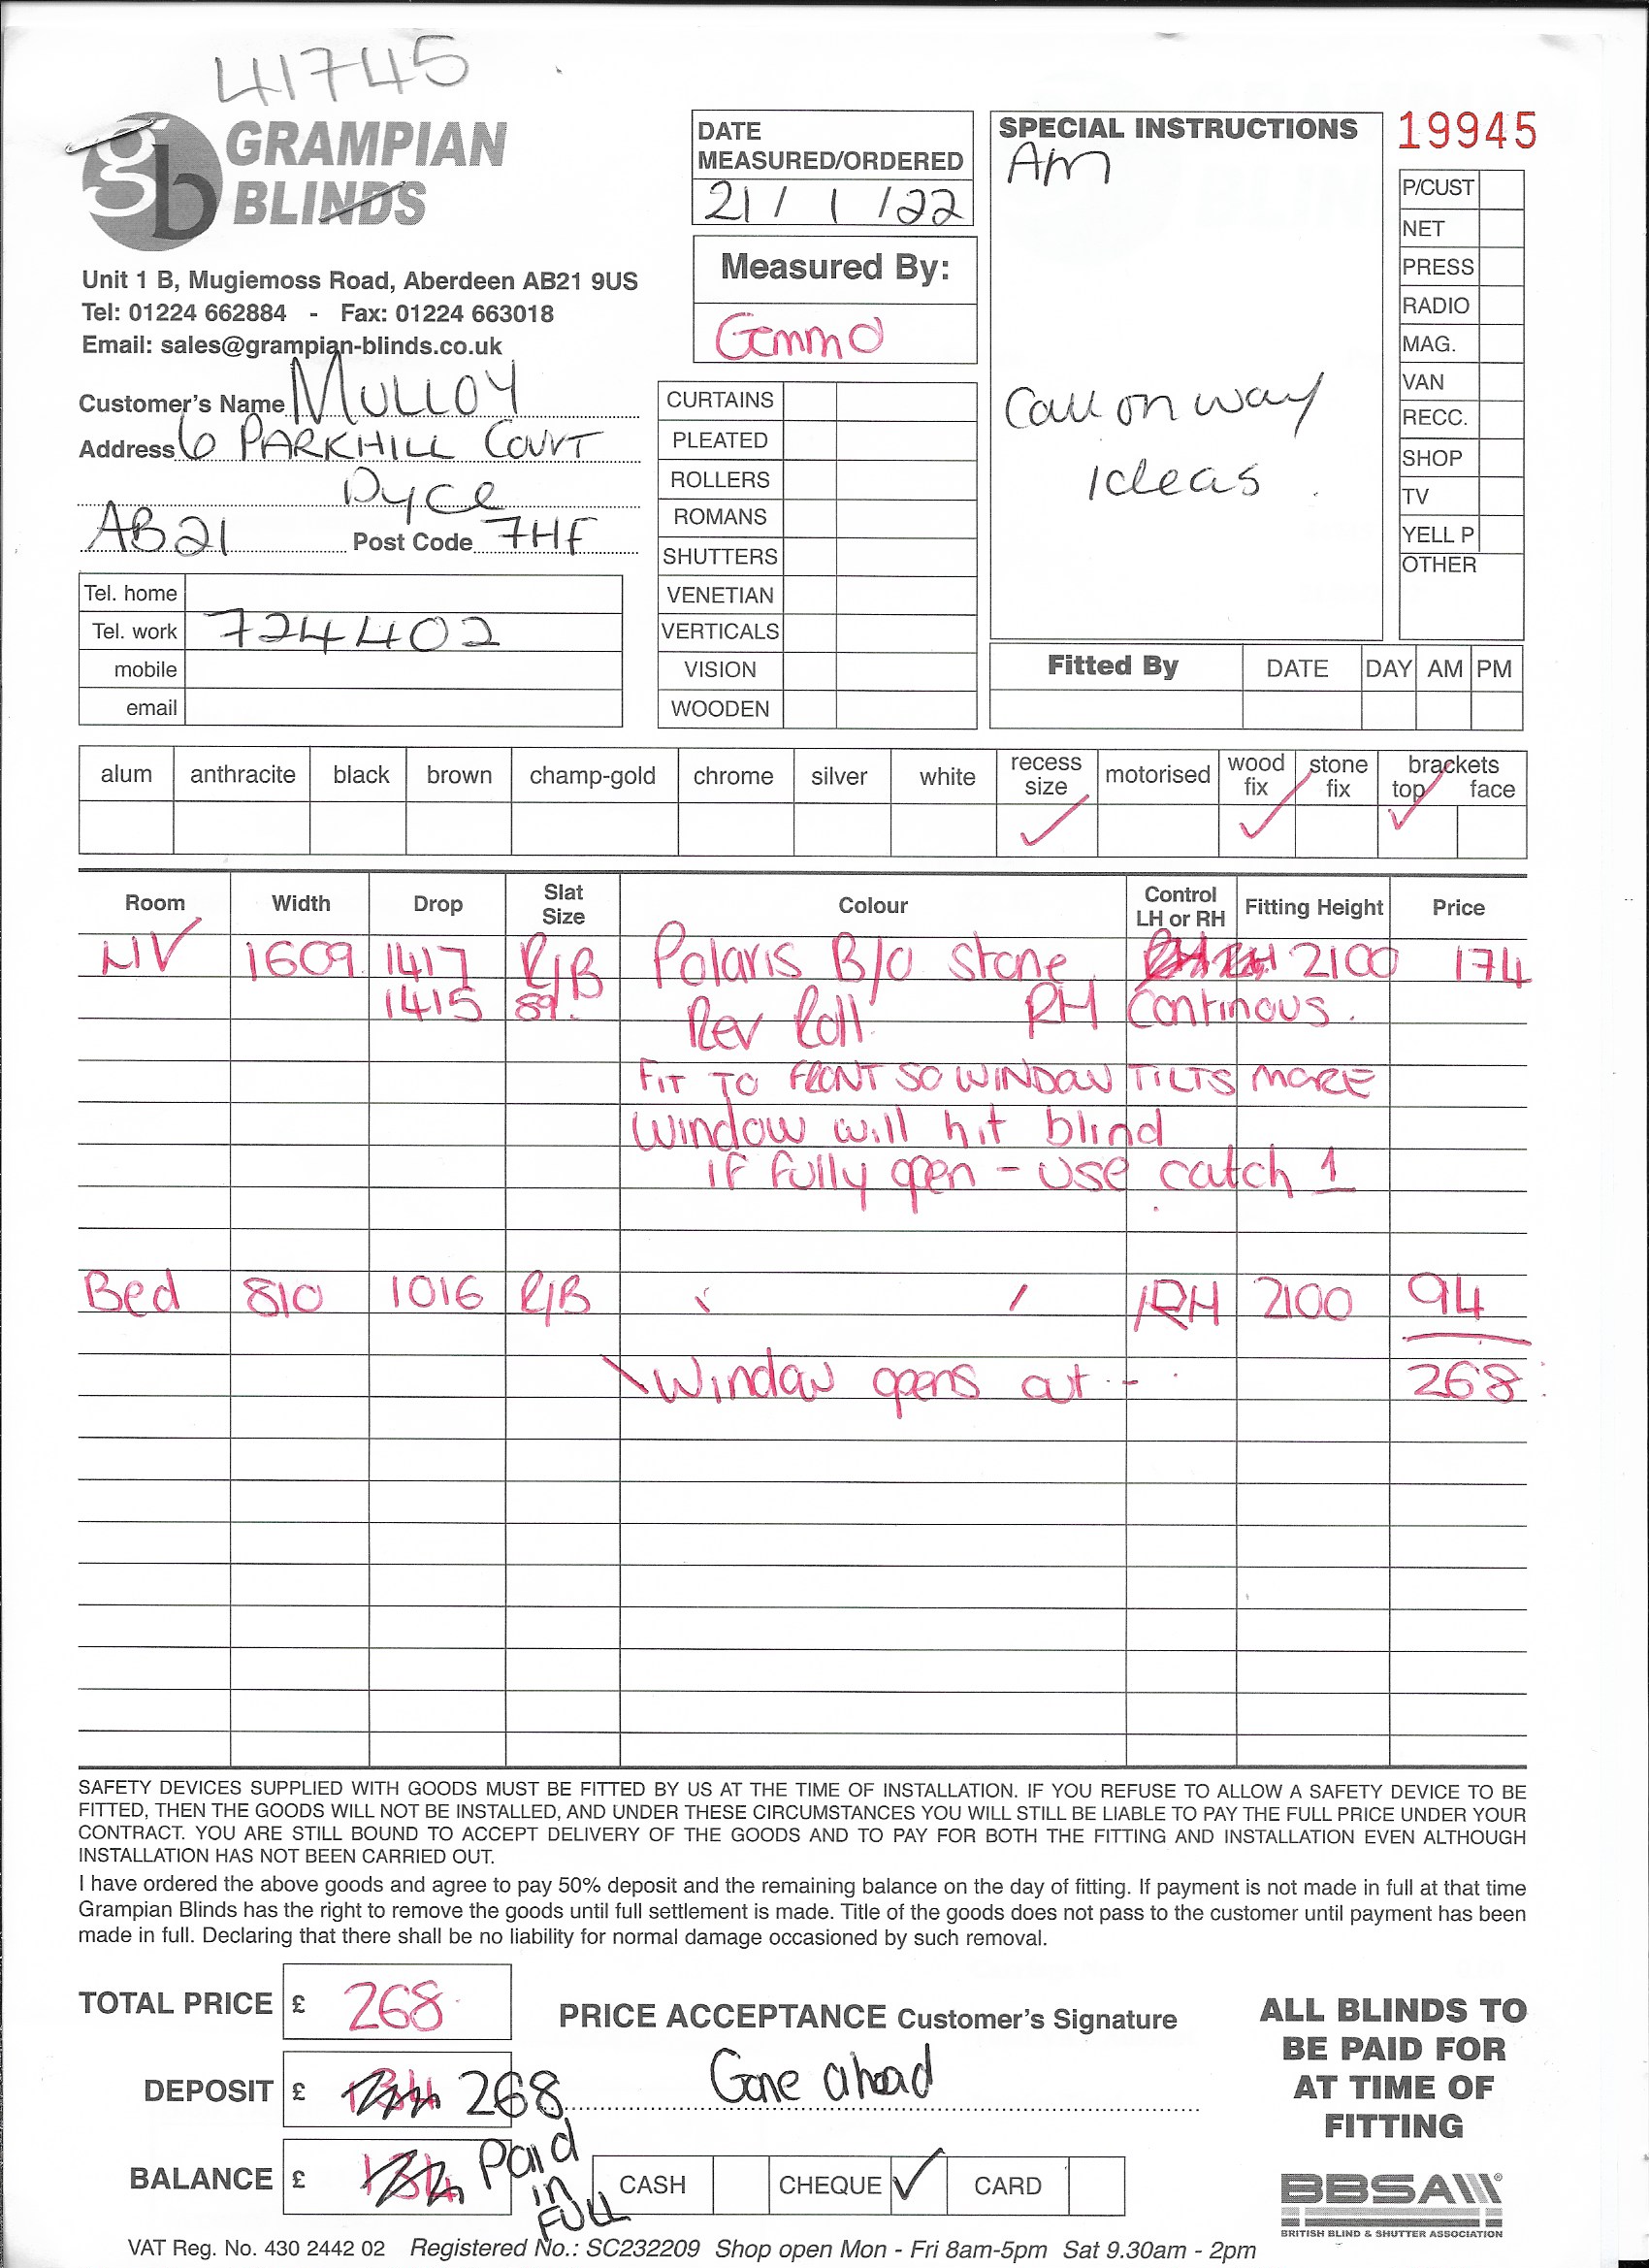 41745
gb GRAMPIAN
BLINDS
Unit 1 B, Mugiemoss Road, Aberdeen AB21 9US
Tel: 01224 662884 - Fax: 01224 663018
Email: sales@grampian-blinds.co.uk
Customer's Name MULLOY
Address 6 PARKHILL COURT
Dyce
AB21 Post Code 7HF
Tel. home
Tel. work 724402
mobile
email
DATE
MEASURED/ORDERED
21 / 1 / 22
Measured By:
Gemma
CURTAINS
PLEATED
ROLLERS
ROMANS
SHUTTERS
VENETIAN
VERTICALS
VISION
WOODEN
SPECIAL INSTRUCTIONS
Am
Call on way
ideas.
19945
P/CUST
NET
PRESS
RADIO
MAG.
VAN
RECC.
SHOP
TV
YELL P
OTHER
Fitted By DATE DAY AM PM
alum anthracite black brown champ-gold chrome silver white recess size motorised wood fix stone fix brackets top face
Room Width Drop Slat Size Colour Control LH or RH Fitting Height Price
LIV 1609 1417 R/B Polaris B/O stone 2100 174
1415 89. Rev Roll RH Continous.
FIT TO FRONT SO WINDOW TILTS MORE
Window will hit blind
if fully open - use catch 1
Bed 810 1016 R/B " / RH 2100 94
Window opens out - 268
SAFETY DEVICES SUPPLIED WITH GOODS MUST BE FITTED BY US AT THE TIME OF INSTALLATION. IF YOU REFUSE TO ALLOW A SAFETY DEVICE TO BE
FITTED, THEN THE GOODS WILL NOT BE INSTALLED, AND UNDER THESE CIRCUMSTANCES YOU WILL STILL BE LIABLE TO PAY THE FULL PRICE UNDER YOUR
CONTRACT. YOU ARE STILL BOUND TO ACCEPT DELIVERY OF THE GOODS AND TO PAY FOR BOTH THE FITTING AND INSTALLATION EVEN ALTHOUGH
INSTALLATION HAS NOT BEEN CARRIED OUT.
I have ordered the above goods and agree to pay 50% deposit and the remaining balance on the day of fitting. If payment is not made in full at that time
Grampian Blinds has the right to remove the goods until full settlement is made. Title of the goods does not pass to the customer until payment has been
made in full. Declaring that there shall be no liability for normal damage occasioned by such removal.
TOTAL PRICE £ 268
DEPOSIT £ 134 268
BALANCE £ 134 Paid in FULL
PRICE ACCEPTANCE Customer's Signature
Gone ahead
CASH CHEQUE ✓ CARD
ALL BLINDS TO
BE PAID FOR
AT TIME OF
FITTING
BBSA
BRITISH BLIND & SHUTTER ASSOCIATION
VAT Reg. No. 430 2442 02 Registered No.: SC232209 Shop open Mon - Fri 8am-5pm Sat 9.30am - 2pm